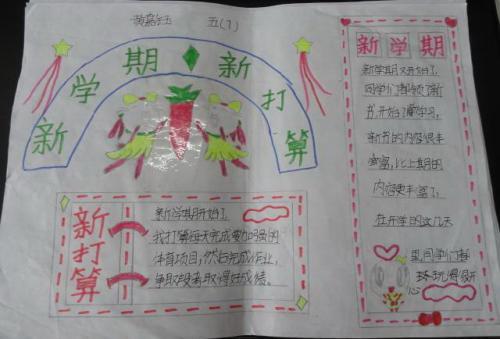 黄嘉钰 五(1)
新学期新打算
新学期
新学期又开始了,
同学们都领了新
书,开始了学习,
新书的内容很丰
富,比上期的
内容更丰富了,
在开学的这几天
里,同学们都
玩得很开
心
新打算
新学期开始了
我打算每天完成
体育项目,然后完成作业,
争取段考取得好成绩。